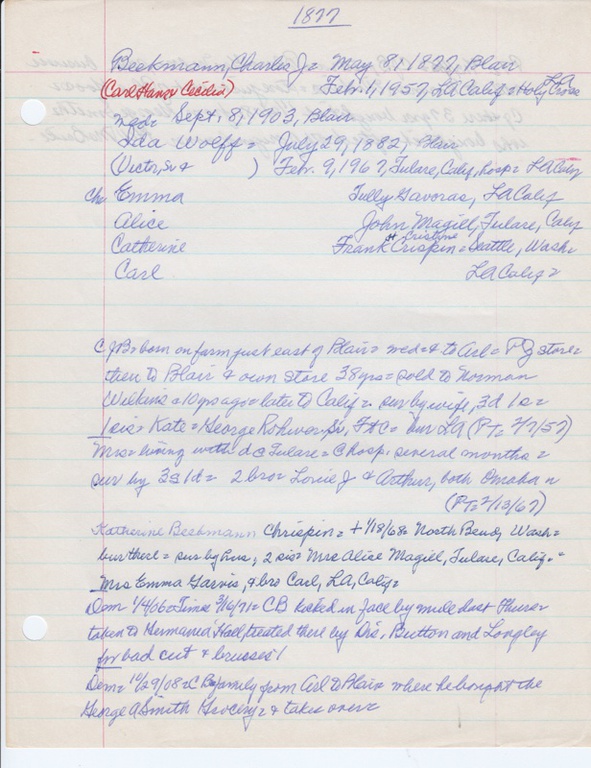 1877
Beckmann, Charles J= May 8, 1877, Blair
(Carl Hans Cecilia) Feb. 1, 1957, LA Calif = Holy Cross LA
med= Sept. 8, 1903, Blair
Ida Wolff = July 29, 1882, Blair
(Victor, Sr & ) Feb. 9, 1967, Tulare, Calif, hosp = LA Calif
Ch Emma Tully Gavoras, LA Calif
Alice John Magill, Tulare, Calif
Catherine Frank Crispin = Seattle, Wash= Cristine
Carl LA Calif =
CJB= born on farm just east of Blair= med= & to Arl= P g store=
then to Blair & own store 38 yrs = sold to Norman
Wilkins = 10 yrs ago = later to Calif = sur by wife, 3d 1s =
1 sis = Kate = George Rohwer Sr, Ft C = bur LA (PT= 2/7/57)
Mrs = living with d C Tulare = C hosp. several months =
sur by 3s 1d = 2 bro = Louie J & Arthur, both Omaha n
(PT= 2/13/67)
Katherine Beckmann Chrispin = + 1/18/68= North Bend, Wash=
bur there = sur by hus, 2 sis = Mrs Alice Magill, Tulare, Calif.=
Mrs Emma Garvis, & bro Carl, LA, Calif=
Dem 1/4/06= Times 3/16/71 = CB kicked in face by mule last Thurs=
taken to Hermania Hall, treated there by Drs. Button and Longley
for bad cut & brusses!
Dem = 10/29/08 = C B & family from Arl to Blair where he bought the
George A Smith Grocery = & takes over=